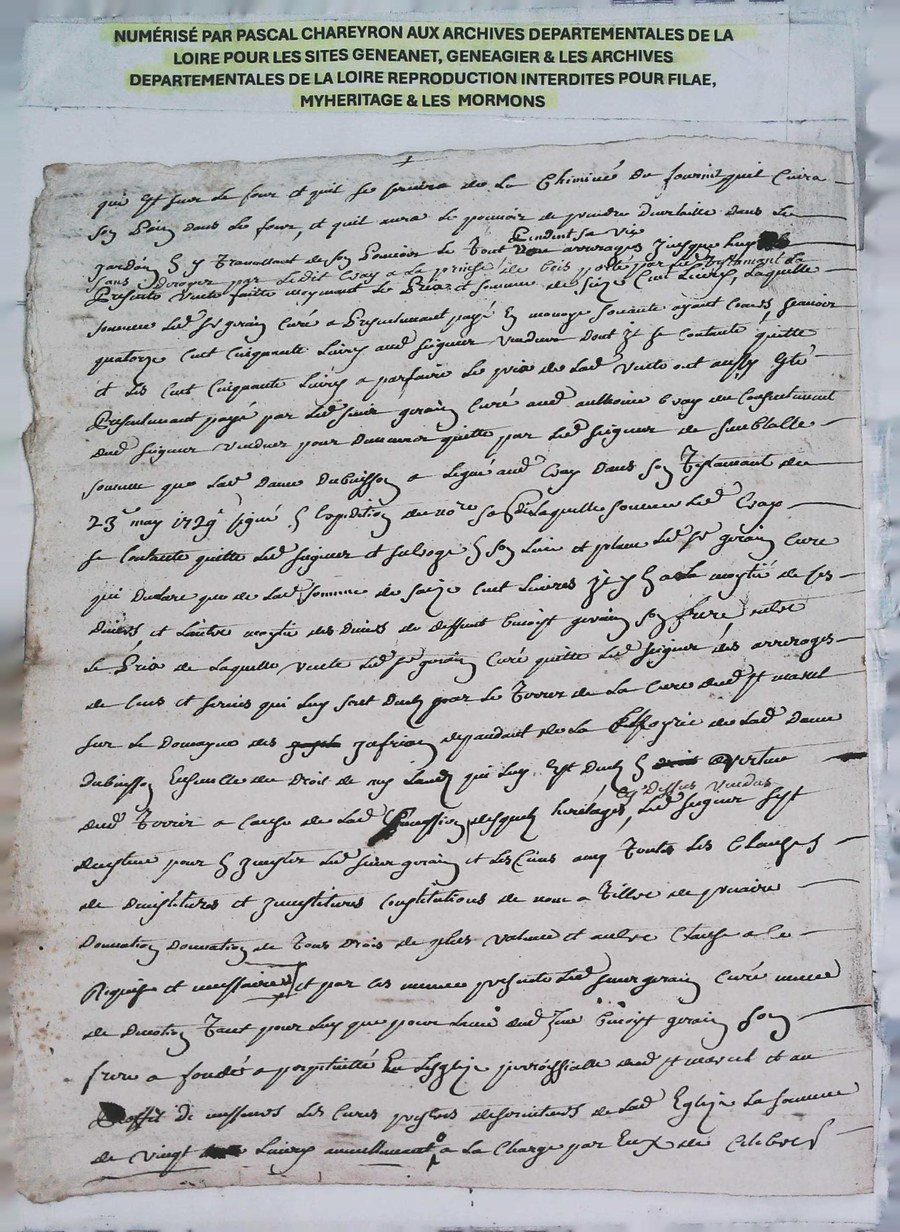 NUMÉRISÉ PAR PASCAL CHAREYRON AUX ARCHIVES DEPARTEMENTALES DE LA
LOIRE POUR LES SITES GENEANET, GENEAGIER & LES ARCHIVES
DEPARTEMENTALES DE LA LOIRE REPRODUCTION INTERDITES POUR FILAE,
MYHERITAGE & LES MORMONS
qui est sur le four et quil se privera de la Chiminée du fournit quil Cuira
son Pain dans le four, et quil aura le pouvoir de prendre dans le
Pendent sa vie
jardin En y Travaillant de son Pouvoir le Tout arrerages jusque
sans deroger par Ledit Gray a la prinse de bois porté par
Presente vente faitte moyenant le Prix et somme de Seize Cent Livres, Laquelle
somme led sr gerain Curé a Presentemant payé En monoye sonante ayant cours, scavoir
quatorze cent Cinquante Livres aud seigneur vendeur Dont il se contante quitte
et les cent Cinquante Livres a parfaire le prix de lad vente ont aussy Eté
Presentemant payé par led sieur gerain Curé aud anthoine Gray du Consentemant
dud seigneur vendeur pour demeurer quitte par led seigneur de semblable
somme que lad dame Dubuisson a Legué aud Gray dans son Testamant du
23e may 1729 signé En Expedition du nore Laquelle somme led Gray
se contante quitte led seigneur et subroge En son lieu et place led sr gerain Curé
qui Declare que de lad somme de seize cent Livres il y En a la moytié de ses
Deniers et L'autre moytie des deniers de deffunt benoist gerain son frere outre
le Prix de Laquelle vente led sr gerain Curé quitte led seigneur des arrerages
de Cens et servis qui luy sont deubs pour le Terrier de la Cure dud st marcel
sur le Domayne des jafrion dependant de la de lad dame
Dubuisson Ensemble du Droit de my Lauds qui luy Est Deub En vertue
cy Dessus Vendus
dud Terrier a Cause de lad desquels heritages, led seigneur sest
demis pour En led sieur gerain et les siens avec Toutes les Clauses
de devestitures et investitures Constitutions de nom a Tiltre de precaire
Donnation Donnation de Tous Drois de plus value et autre Clause a ce
Requise et necessaire et par ces mesmes presente led sieur gerain Curé meue
de devotion Tant pour luy que pour led feu benoist gerain son
frere a fondé a perpetuité En Lesglize parroissialle dud st marcel et au
proffit de messieurs les Curés prestres desserviteurs de lad Eglize La somme
de vingt Livres annuellemant a la Charge par Eux de Celebrer